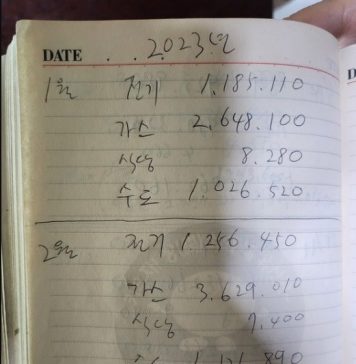 DATE 2023년
1월 전기 1.185.110
가스 2.648.100
식당 8.280
수도 1.026.520
2월 전기 1.256.450
가스 3.629.010
식당 7.400
수도 1.121.890